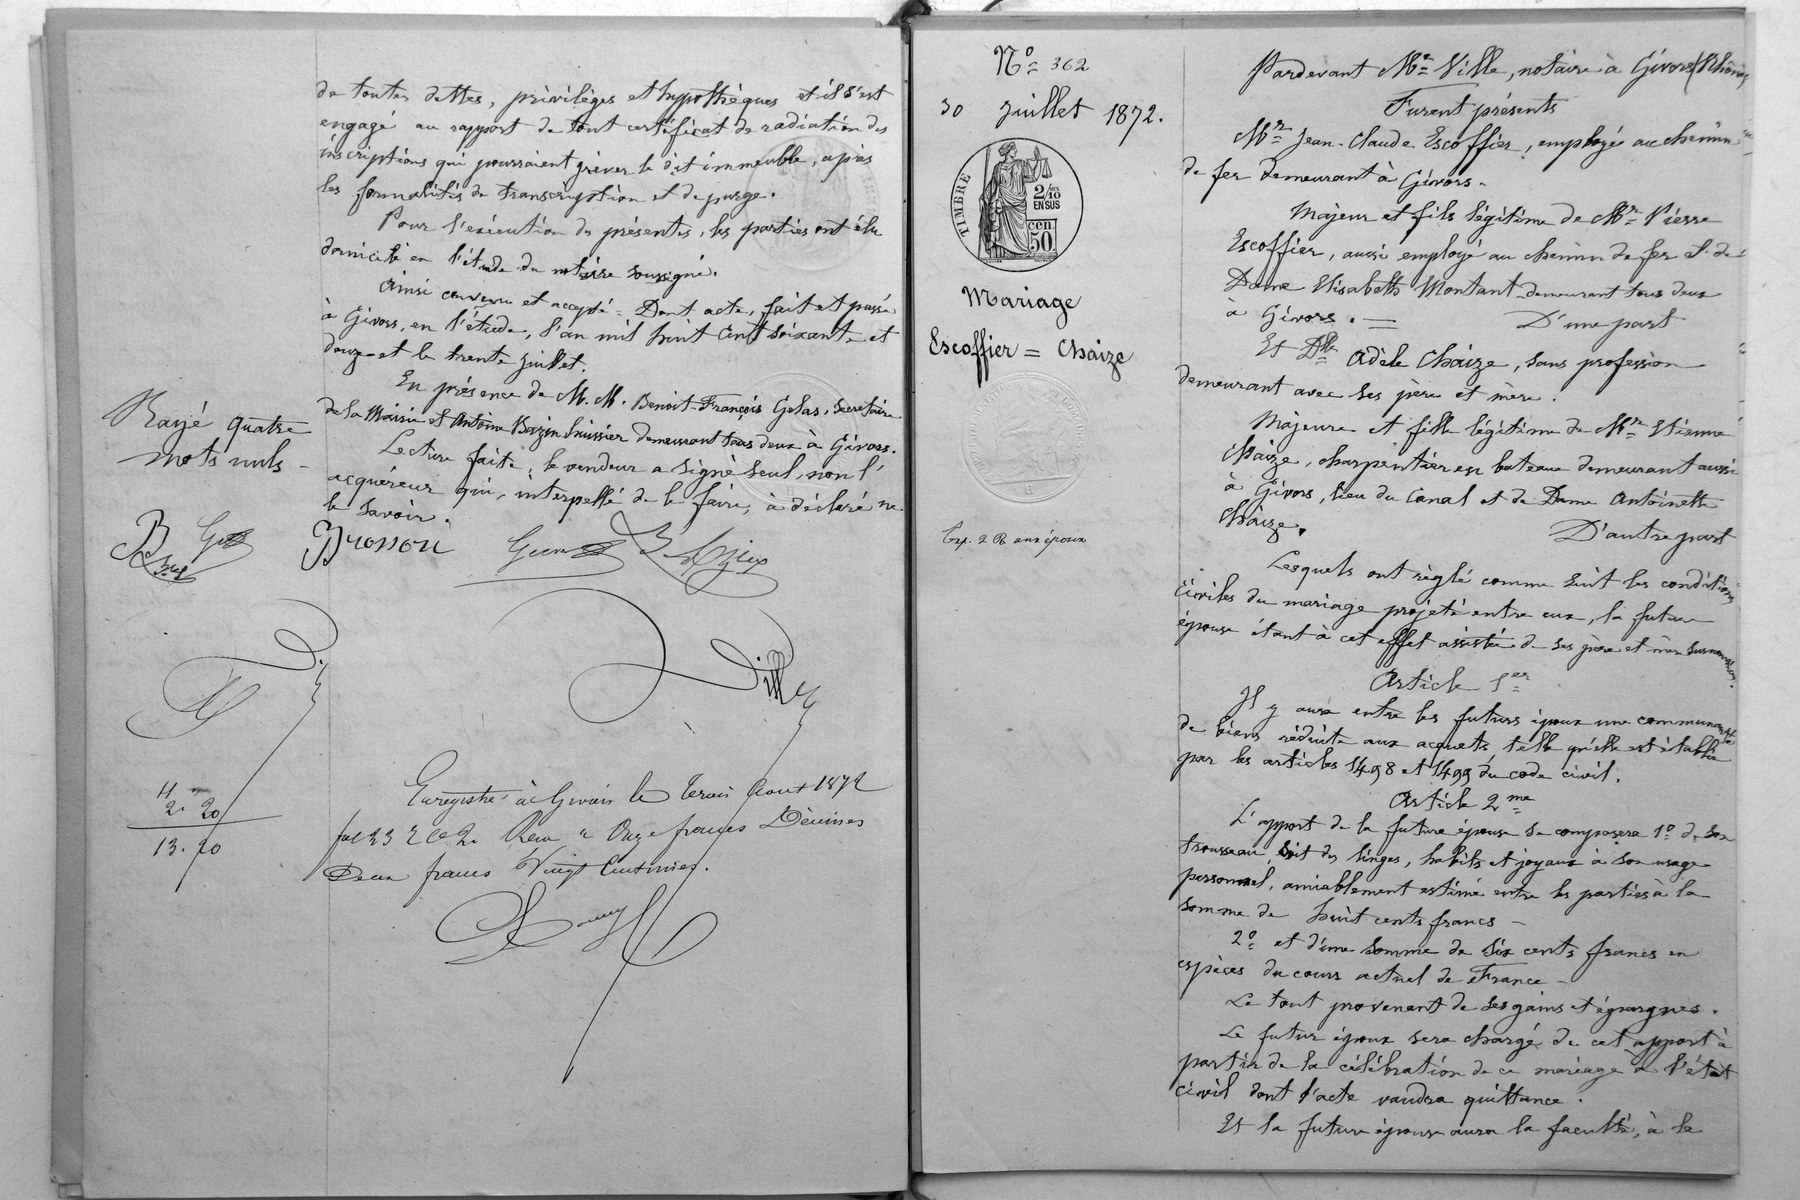 de toutes dettes, privilèges et hypothèques et il s'est
engagé au rapport de tout certificat de radiation des
inscriptions qui pourraient grèver le dit immeuble, après
les formalités de transcription et de purge.
Pour l'exécution des présentes, les parties ont élu
domicile en l'étude du notaire soussigné.
Ainsi convenu et accepté = Dont acte, fait et passé
à Givors, en l'étude, l'an mil huit cent soixante et
douze et le trente juillet.
En présence de M. M. Benoit-François Gelas, Secrétaire
de la Mairie et Antoine Bazin huissier demeurant tous deux à Givors.
Lecture faite, le vendeur a signé seul, non l'
acquéreur qui, interpellé de le faire, à déclaré ne
le savoir.
Rayé quatre
mots nuls -
Ville
Enregistré à Givors le trois Aout 1872
fol 23 Reçu Onze francs Décimes
Deux francs Vingt Centimes.
11 "
2. 20
13. 20
Nº 362
30 Juillet 1872.
TIMBRE
2/10
EN SUS
50 cen
Mariage
Escoffier = Chaize
Exp. 2 R aux époux
Pardevant Me Ville, notaire à Givors (Rhône)
Furent présents
Mr Jean-Claude Escoffier, employé au chemin
de fer demeurant à Givors.
Majeur et fils légitime de Mr Pierre
Escoffier, aussi employé au chemin de fer et de
Dame Elisabeth Montant demeurant tous deux
à Givors. — D'une part
Et Dlle Adèle Chaize, sans profession
demeurant avec ses père et mère.
Majeure et fille légitime de Mr Etienne
Chaize, charpentier en bateau demeurant aussi
à Givors, lieu du Canal et de Dame Antoinette
Chaize. D'autre part
Lesquels ont règlé comme suit les conditions
civiles du mariage projeté entre eux, la future
épouse étant à cet effet assistée de ses père et mère susnommés.
Article 1er
Il y aura entre les futurs époux une communauté
de biens réduite aux acquets telle qu'elle est établie
par les articles 1498 et 1499 du code civil.
Article 2me
L'apport de la future épouse se composera 1º de son
trousseau, soit des linges, habits et joyaux à son usage
personnel, amiablement estimé entre les parties à la
somme de huit cents francs -
2º et d'une somme de six cents francs en
espèces du cours actuel de France -
Le tout provenant de ses gains et épargnes.
Le futur époux sera chargé de cet apport à
partir de la célébration de ce mariage à l'état
civil dont l'acte vaudra quittance.
Et la future épouse aura la faculté, à la